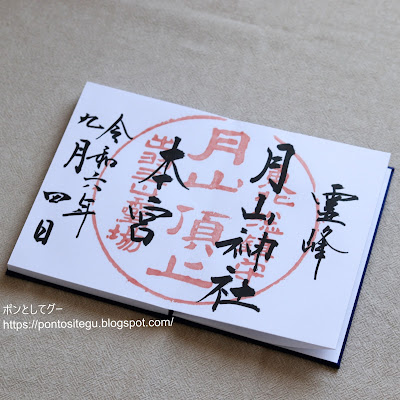 霊峰
月山神社
本宮
令和六年
九月四日
月山
頂上
ポンとしてグー
https://pontositegu.blogspot.com/